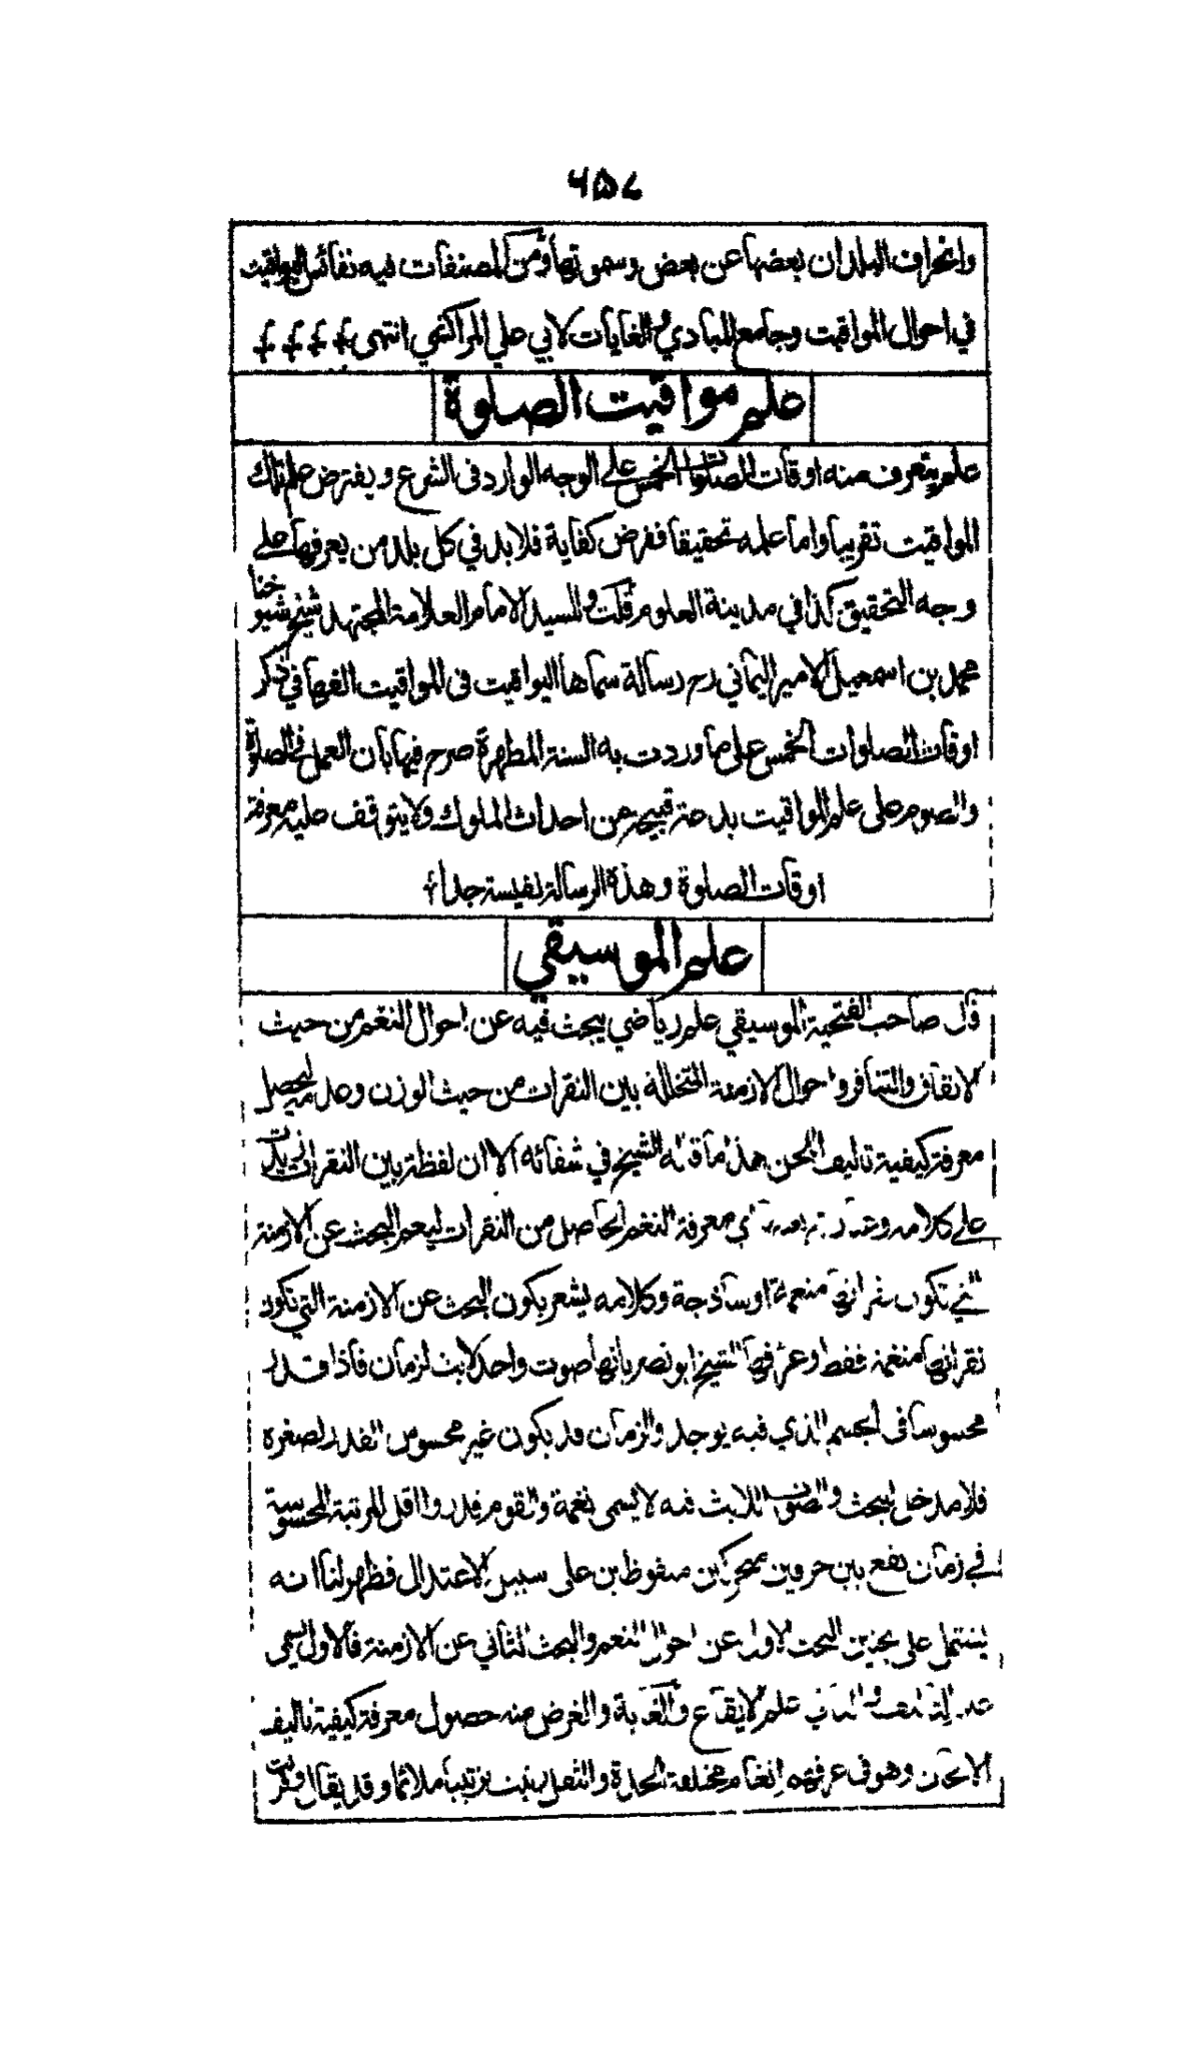 ٦٥٧
وانحراف البلدان بعضها عن بعض وسموتها ومن المصنفات فيه نفائس اليواقيت
في احوال المواقيت وجامع المبادي والغايات لابي علي المراكشي انتهى
علم مواقيت الصلوة
علم يتعرف منه اوقات الصلوات الخمس على الوجه الوارد في الشرع ويفترض علم تلك
المواقيت تقريبا واما علمه تحقيقا ففرض كفاية فلابد في كل بلد من يعرفها على
وجه التحقيق كذا في مدينة العلوم قلت وللسيد الامام العلامة المجتهد شيخ شيوخنا
محمد بن اسمعيل الامير اليماني رح رسالة سماها اليواقيت في المواقيت الفها في ذكر
اوقات الصلوات الخمس على ما وردت به السنة المطهرة صرح فيها بان العمل في الصلوة
والصوم على علم المواقيت بدعة قبيحة من احداث الملوك ولا يتوقف عليه معرفة
اوقات الصلوة وهذه الرسالة نفيسة جدا
علم الموسيقي
قال صاحب الفتحية الموسيقي علم رياضي يبحث فيه عن احوال النغم من حيث
الاتفاق والتنافر واحوال الازمنة المتخللة بين النقرات من حيث الوزن وعدمه ليحصل
معرفة كيفية تاليف اللحن هذا ما قاله الشيخ في شفائه الا ان لفظة بين النقرات زيدت
على كلامه وعدد ... اي معرفة النغم الحاصل من النقرات ليعم البحث عن الازمنة
التي تكون نقراتها منغمة او ساذجة وكلامه يشعر بكون البحث عن الازمنة التي تكون
نقراتها منغمة فقط وعرفها الشيخ ابو نصر بانها صوت واحد لابث لزمان فاذا قدر
محسوسا في الجسم الذي فيه يوجد والزمان قد يكون غير محسوس القدر لصغره
فلا مدخل للبحث والصوت اللابث فيه لا يسمى نغمة والقوم قدروا اقل المرتبة المحسوسة
في زمان يقع بين حرفين متحركين ملفوظين على سبيل الاعتدال فظهر لنا انه
يشتمل على بحثين البحث الاول عن احوال النغم والبحث الثاني عن الازمنة فالاول يسمى
علم التاليف والثاني علم الايقاع والغاية والغرض منه حصول معرفة كيفية تاليف
الالحان وهو في عرفهم انغام مختلفة الحدة والثقل رتبت ترتيبا ملائما وقد يقال وقرنت